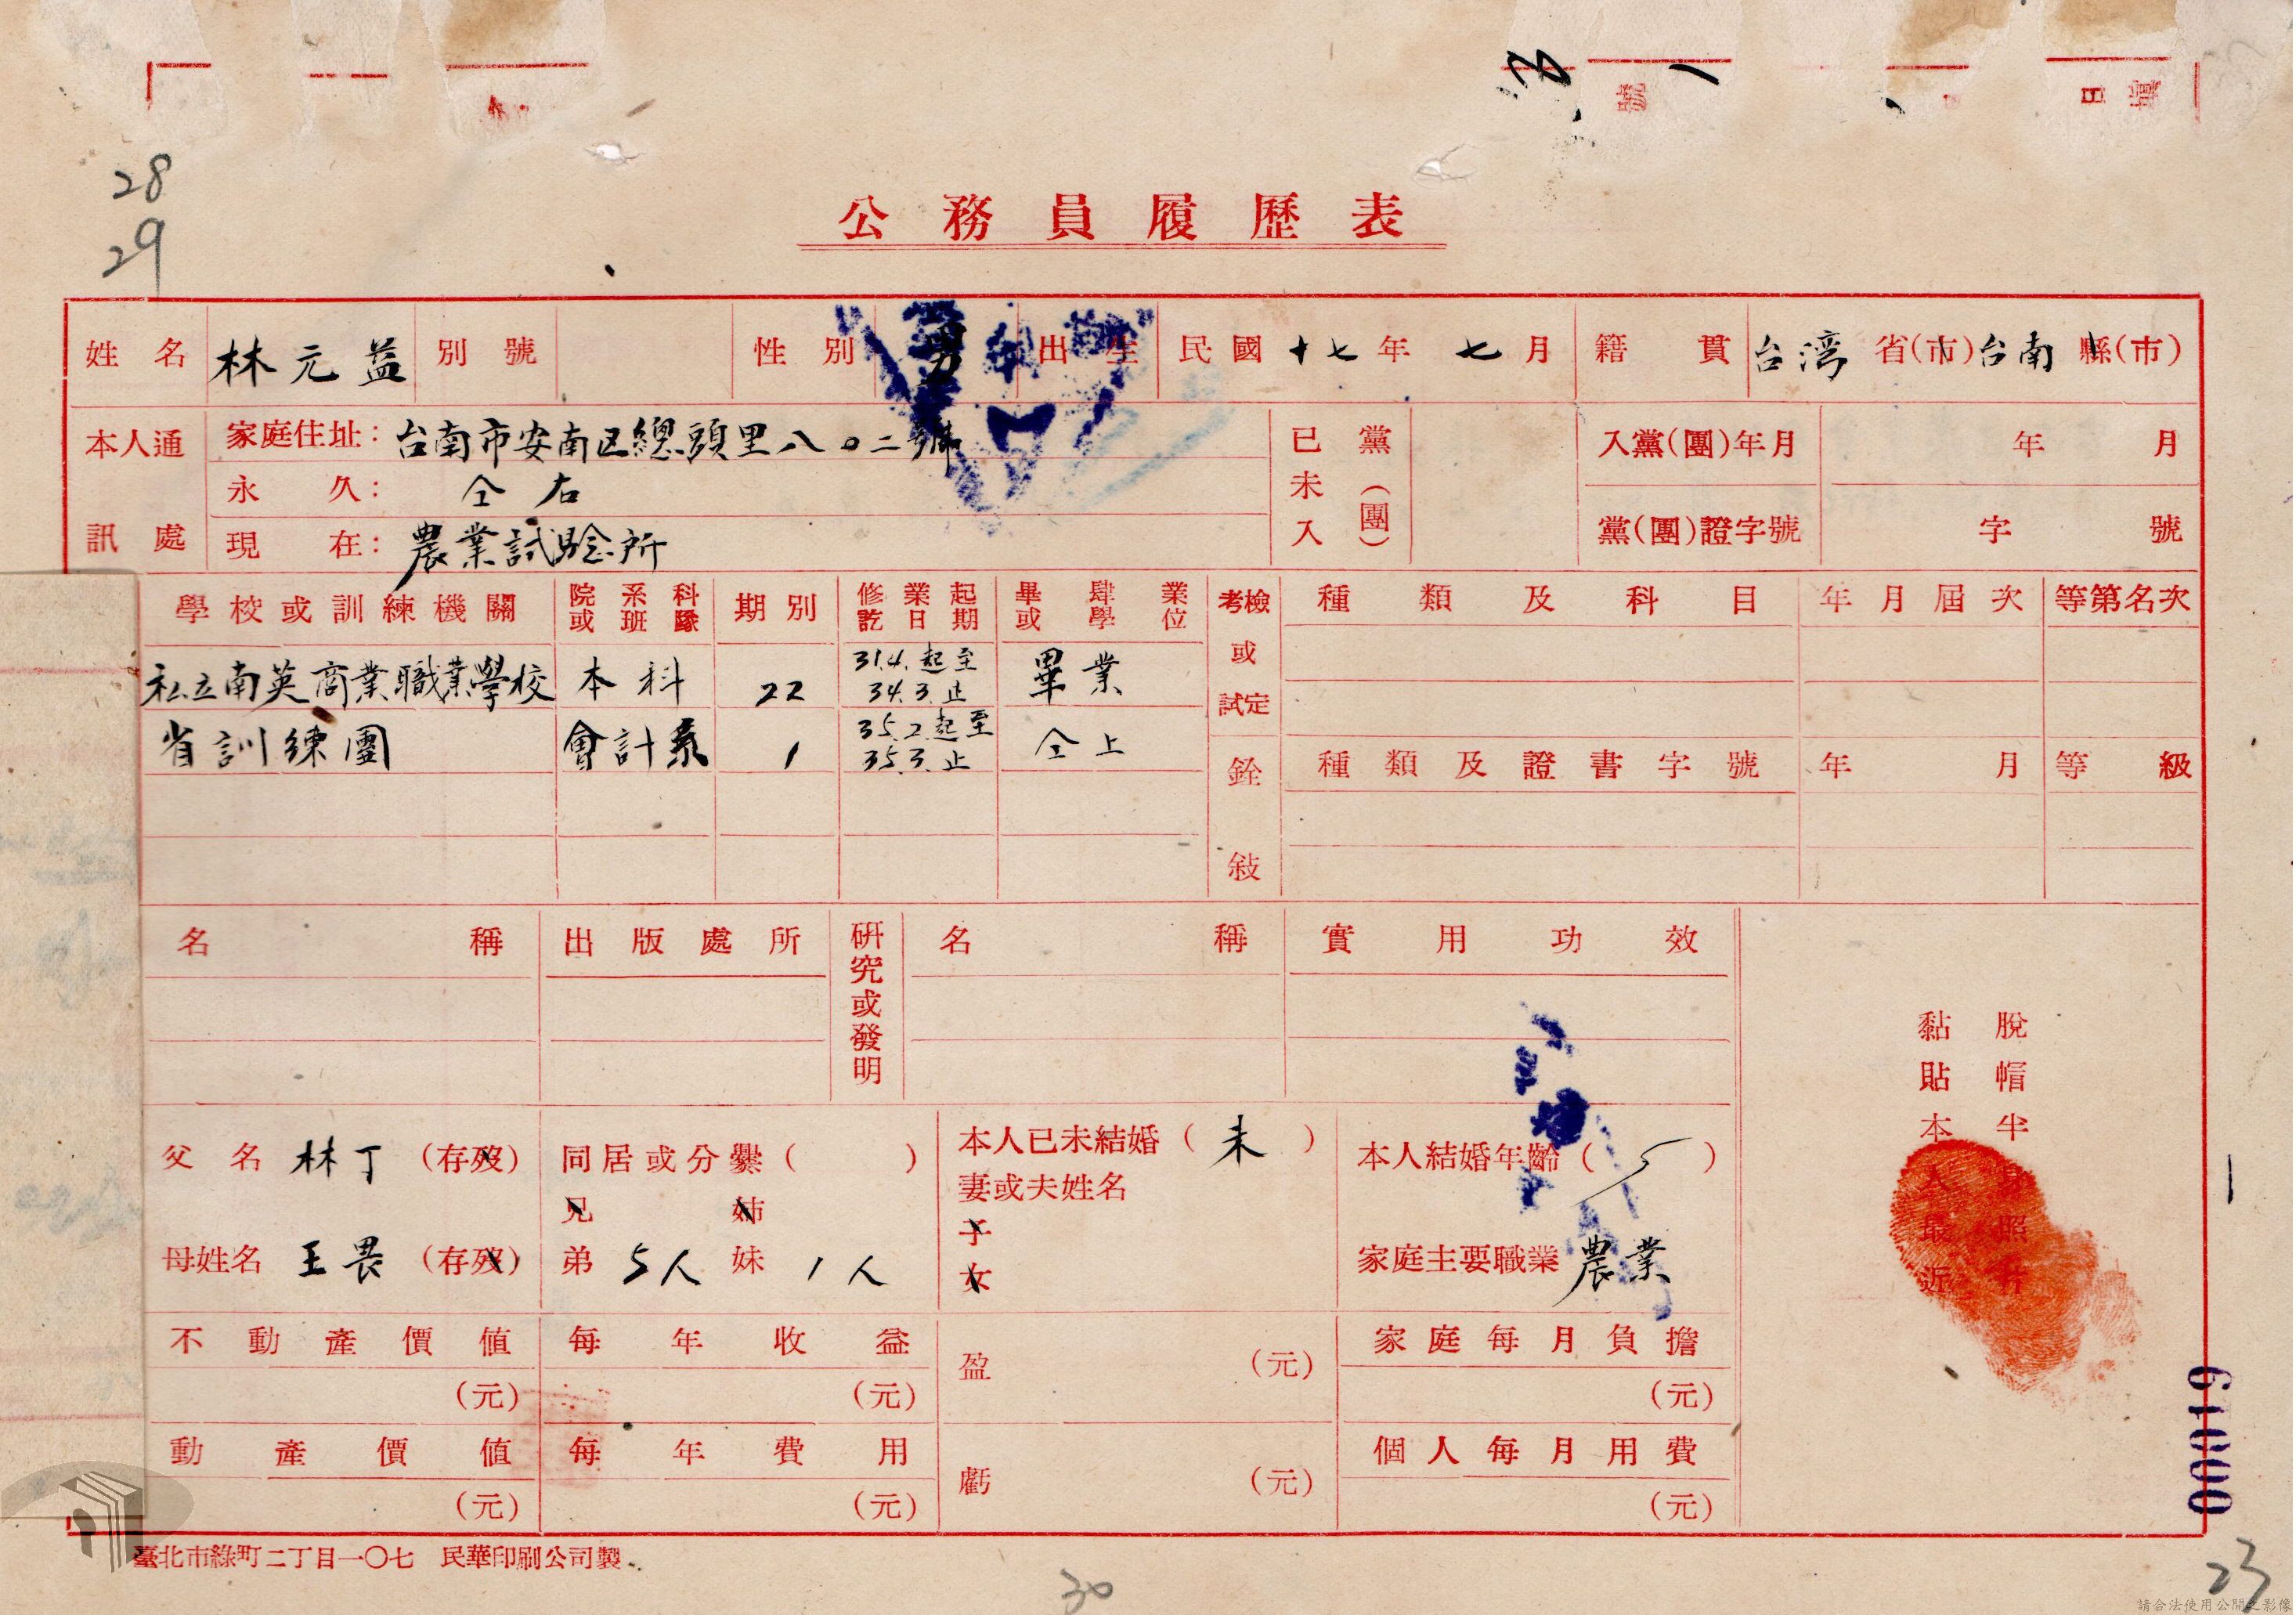 28
29
公務員履歷表
姓名 林元益 別號 性別 男 出生 民國十七年七月 籍貫 台湾省(市)台南縣(市)
本人通訊處 家庭住址：台南市安南区總頭里八〇二號
永久：仝右
現在：農業試驗所
已未入黨(團) 入黨(團)年月 年 月
黨(團)證字號 字 號
學校或訓練機關 院系科或班隊 期別 修業起訖日期 畢肄業或學位
私立南英商業職業學校 本科 22 31.4.起至34.3.止 畢業
省訓練團 會計系 1 35.2.起至35.3.止 仝上
考檢或試定 種類及科目 年月屆次 等第名次
銓敍 種類及證書字號 年月 等級
名稱 出版處所 研究或發明 名稱 實用功效
父名 林丁 (存歿) 同居或分爨( ) 本人已未結婚(未) 本人結婚年齡( )
妻或夫姓名
母姓名 王畏 (存歿) 兄弟 5人 姉妹 1人 子女 家庭主要職業 農業
不動產價值 (元) 每年收益 (元) 盈 (元) 家庭每月負擔 (元)
動產價值 (元) 每年費用 (元) 虧 (元) 個人每月用費 (元)
脫帽半身照片
黏貼本人最近
00019
臺北市綠町二丁目一〇七 民華印刷公司製
30
23
請合法使用公開之影像